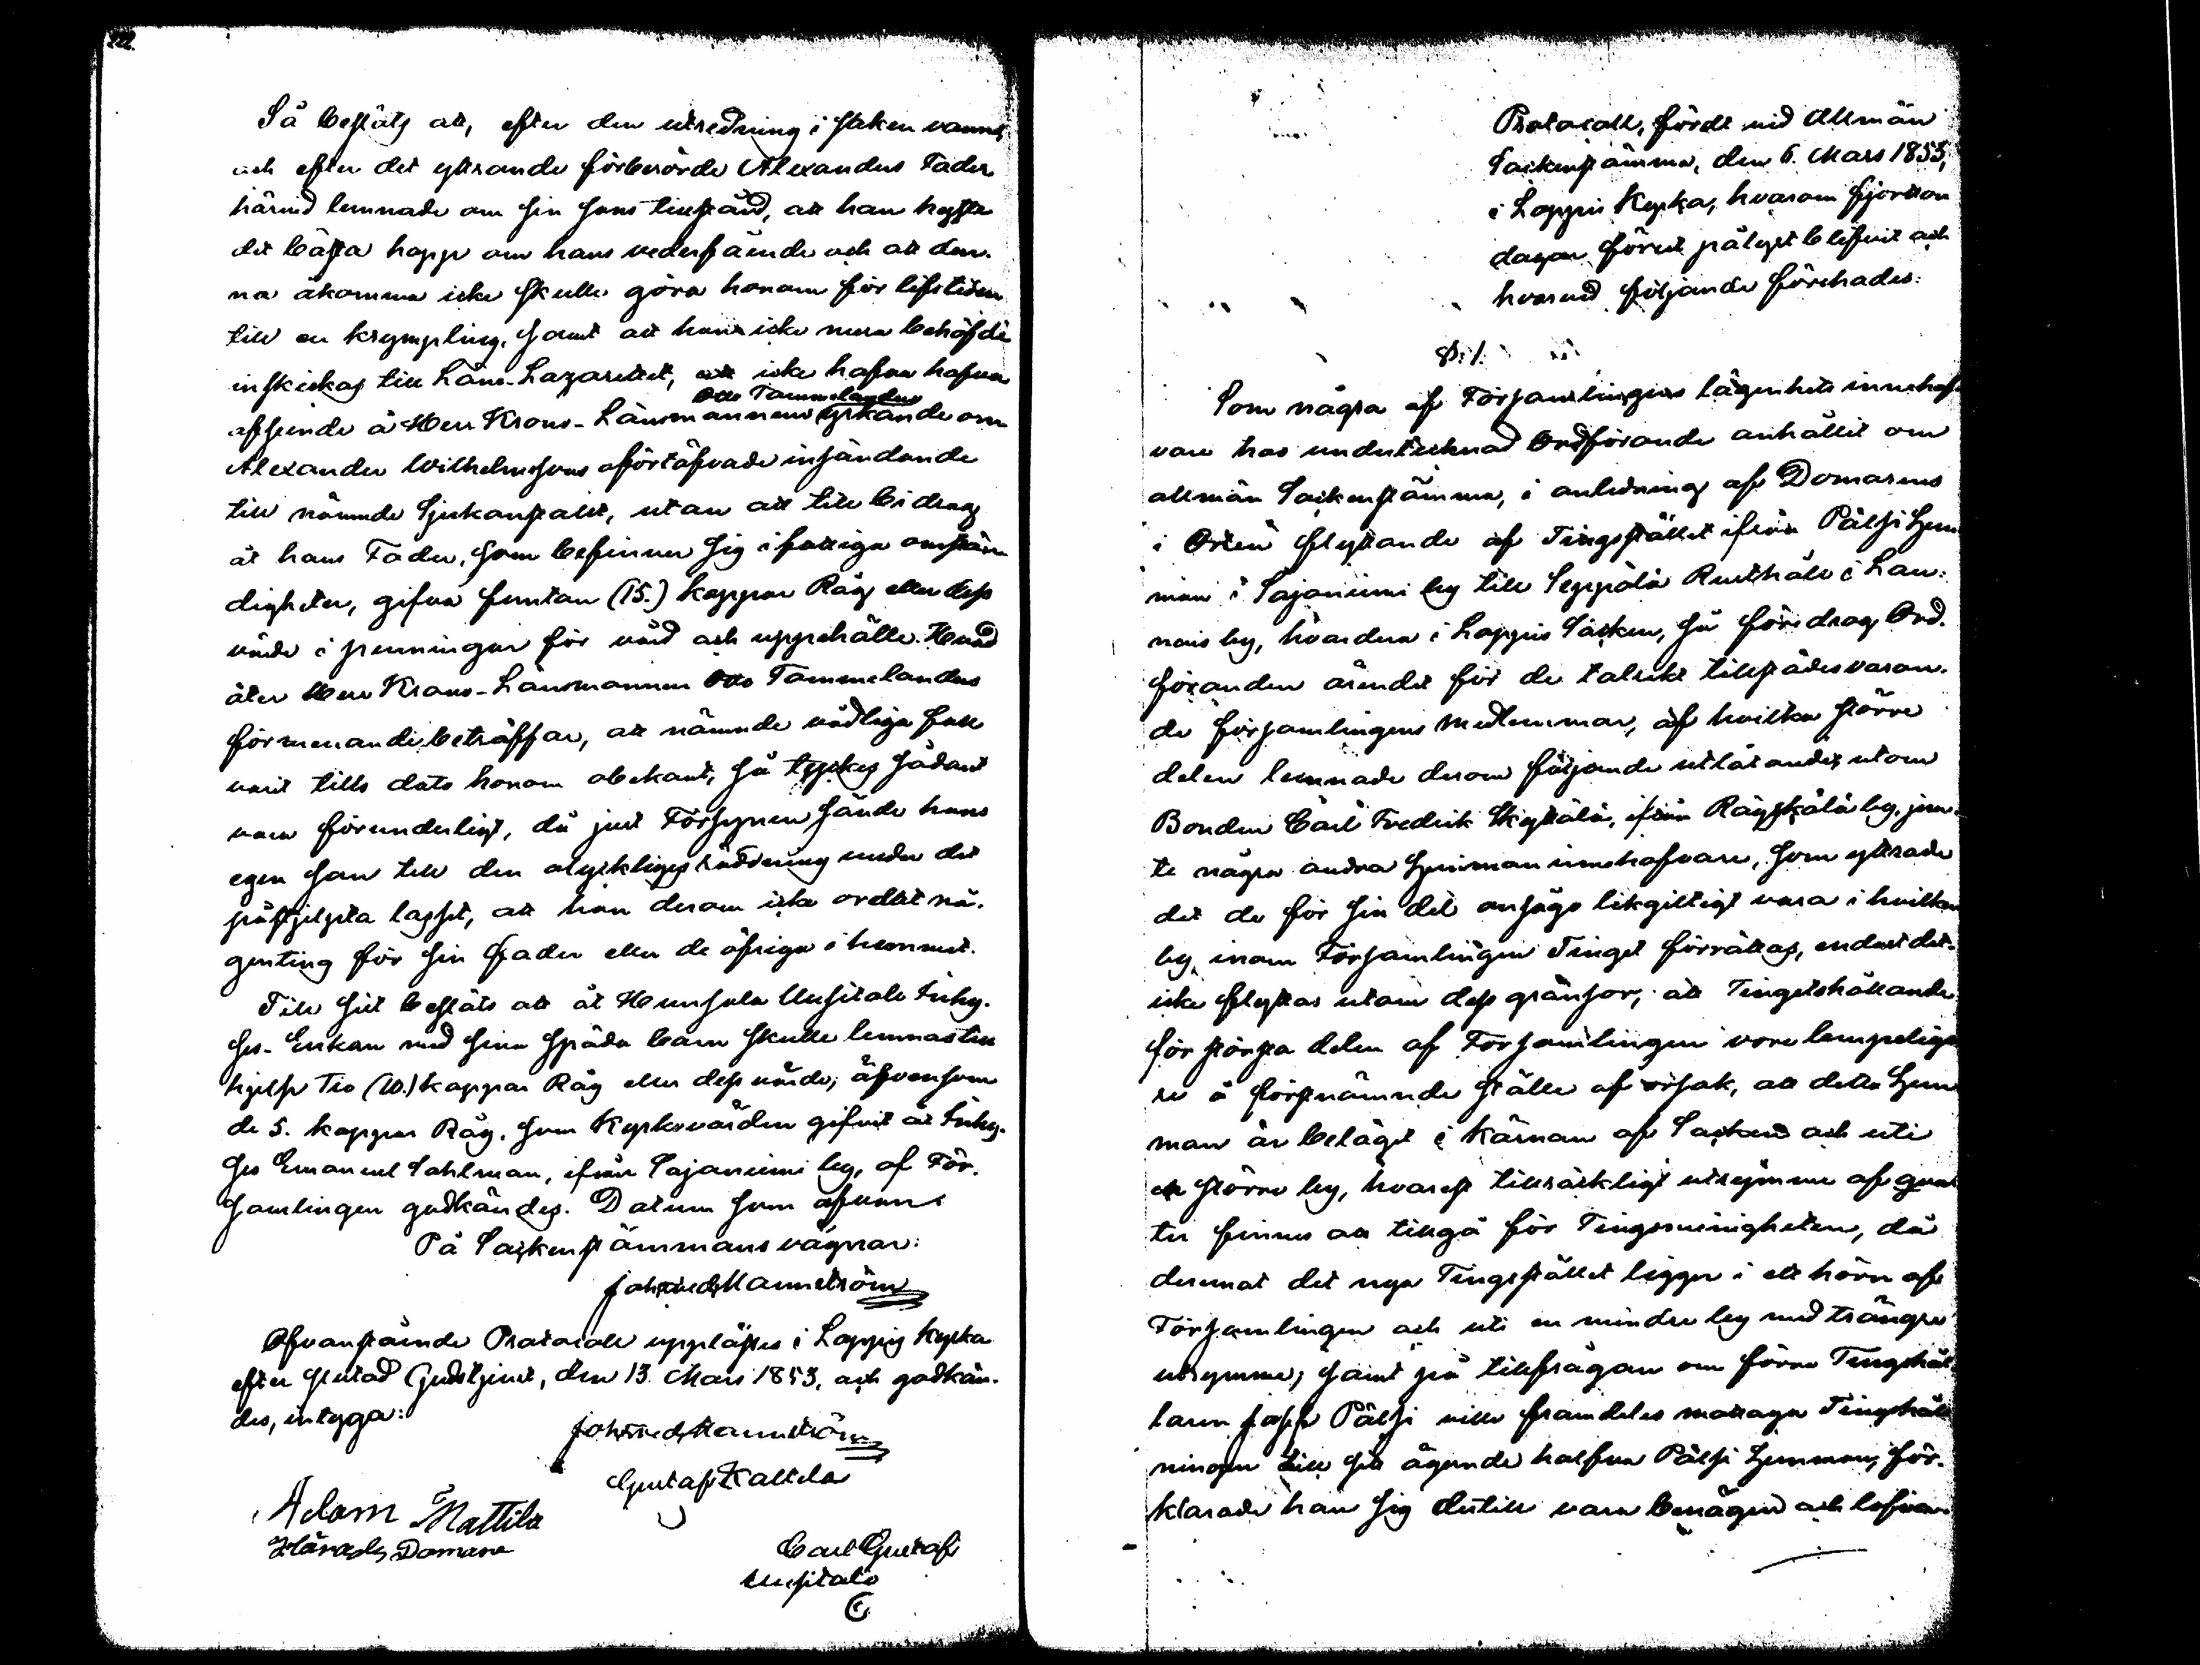 222.
Så beslöts att, efter den utredning i saken vanns,
och efter det yttrande förberörde Alexanders Fader
härmed lemnade om sin sons tillstånd, att han hyste
det bästa hopp om hans vederfående och att den-
na åkomma icke skulle göra honom för lifstiden
till en krympling, samt att han icke mera behöfde
inskickas till Läns-Lazarettet, att icke hafva
afseende å Herr Krono-Länsmannen Otto Tammelanders yrkande om
Alexander Wilhelmssons oförtöfvade insändande
till nämnde Sjukanstalt, utan att till bidrag
åt hans Fader, som befinner sig i fattiga omstän-
digheter, gifva femtan (15.) kappar Råg eller dess
värde i penningar för vård och uppehälle. Hvad
åter Herr Krono-Länsmannen Otto Tammelanders
förmenande beträffar, att nämnde vådliga fall
varit tills dato honom obekant, så tyckes sådant
vara förunderligt, då just Försynen sände hans
egen son till den olyckliges räddning under det
påstjelpta lasset, att han derom icke ordat nå-
genting för sin fader eller de öfriga i hemmet.
Till sist beslöts att åt Hunsala Uusitalo Inhy-
ses-Enkan med sina späda barn skulle lemnas till
hjelp Tio (10.) kappar Råg eller dess värde; äfvensom
de 5. kappar Råg, som Kyrkovärden gifvit åt Inhy-
ses Emanuel Sahlman, ifrån Sajaniemi by, af För-
samlingen godkändes. Datum som ofvan
På Sockenstämmans vägnar:
Joh. Fred. Mannström
Ofvanstående Protocoll upplästes i Loppis Kyrka
efter slutad Gudstjenst, den 13. Mars 1853, och godkän-
des, intyga:
Joh. Fred. Mannström
Gustaf Kaltila
Adam Mattila
Härads Domare
Carl Gustaf
Uusitalo
Protocoll, fördt vid Allmän
Sockenstämma, den 6. Mars 1853,
i Loppis Kyrka, hvarom fjorton
dagar förut pålyst blifvit och
hvarvid följande förehades:
§. 1.
Som några af Församlingens lägenhets innehaf-
vare hos undertecknad Ordförande anhållit om
allmän Sockenstämma, i anledning af Domarens
i Orten flyttande af Tingsstället ifrån Pälsi Hem-
man i Sajaniemi by till Seppälä Rusthåll i Lau-
nois by, hvardera i Loppis Socken, så föredrog Ord-
föranden ärendet för de talrikt tillstädesvaran-
de församlingens medlemmar, af hvilka större
delen lemnade derom följande utlåtande, utom
Bonden Carl Fredrik Skyttälä, ifrån Räyskälä by, jem-
te några andra Hemman innehafvare, som yttrade
det de för sin del ansågo likgiltigt vara i hvilken
by inom Församlingen Tinget förrättas, endast det
icke flyttas utom dess gränsor; att Tingetshållande
för största delen af Församlingen vore lämpeliga-
re å förstnämnde ställe af orsak, att detta Hem-
man är beläget i kärnan af Socken och uti
en större by, hvarest tillräckligt utrymme af quar-
ter finnes att tillgå för Tingsmenigheten, då
deremot det nya Tingsstället ligger i ett hörn af
Församlingen och uti en mindre by med trängre
utrymme; samt på tillfrågan om förra Tingshål-
laren Pälsi ville framdeles mottaga Tingshåll-
ningen till sitt ägande halfva Pälsi Hemman, för-
klarade han sig dertill vara benägen och lofvan-